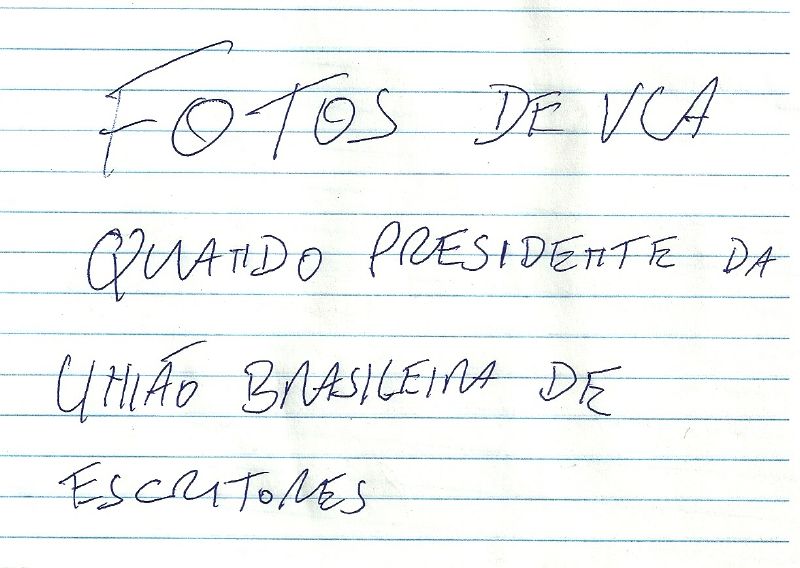 FOTOS DE VCA
QUANDO PRESIDENTE DA
UNIÃO BRASILEIRA DE
ESCRITORES